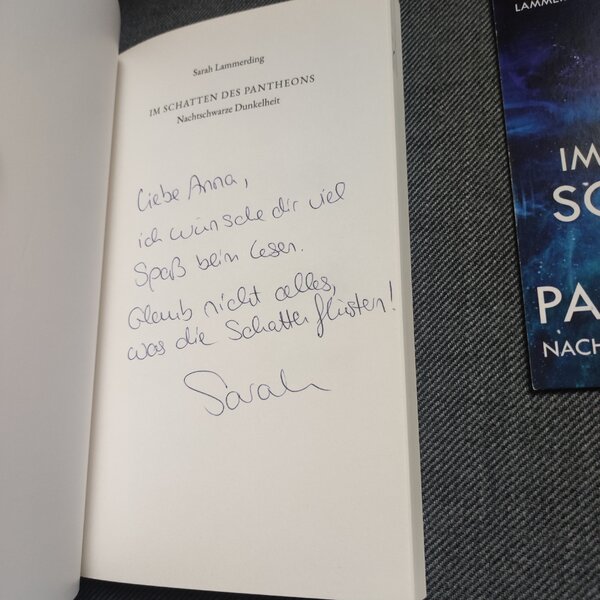 Sarah Lammerding
IM SCHATTEN DES PANTHEONS
Nachtschwarze Dunkelheit
Liebe Anna,
ich wünsche dir viel
Spaß beim Lesen.
Glaub nicht alles,
was die Schatten flüstern!
Sarah
LAMMER
IM
SC
PA
NACH